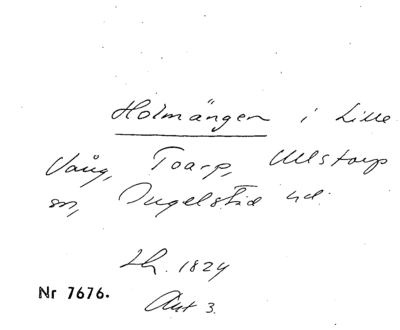 Holmängen i Lille
Vång, Toarp, Ullstorp
sn, Ingelstad hd.
Lh. 1824
Nr 7676. Akt 3.